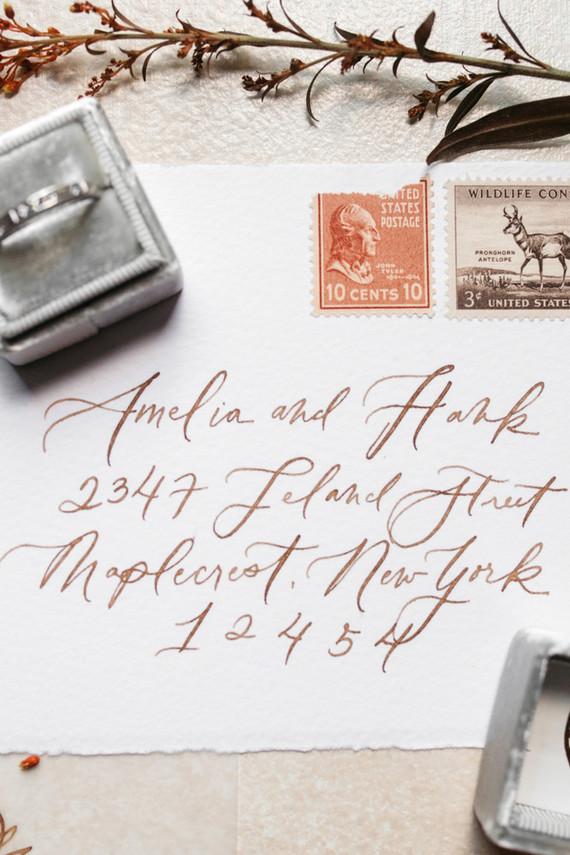 UNITED
STATES
POSTAGE
JOHN
TYLER
1841-1845
10 CENTS 10
WILDLIFE CON
PRONGHORN
ANTELOPE
3¢ UNITED STATES
Amelia and Hank
2347 Leland Street
Maplecrest, New York
12454